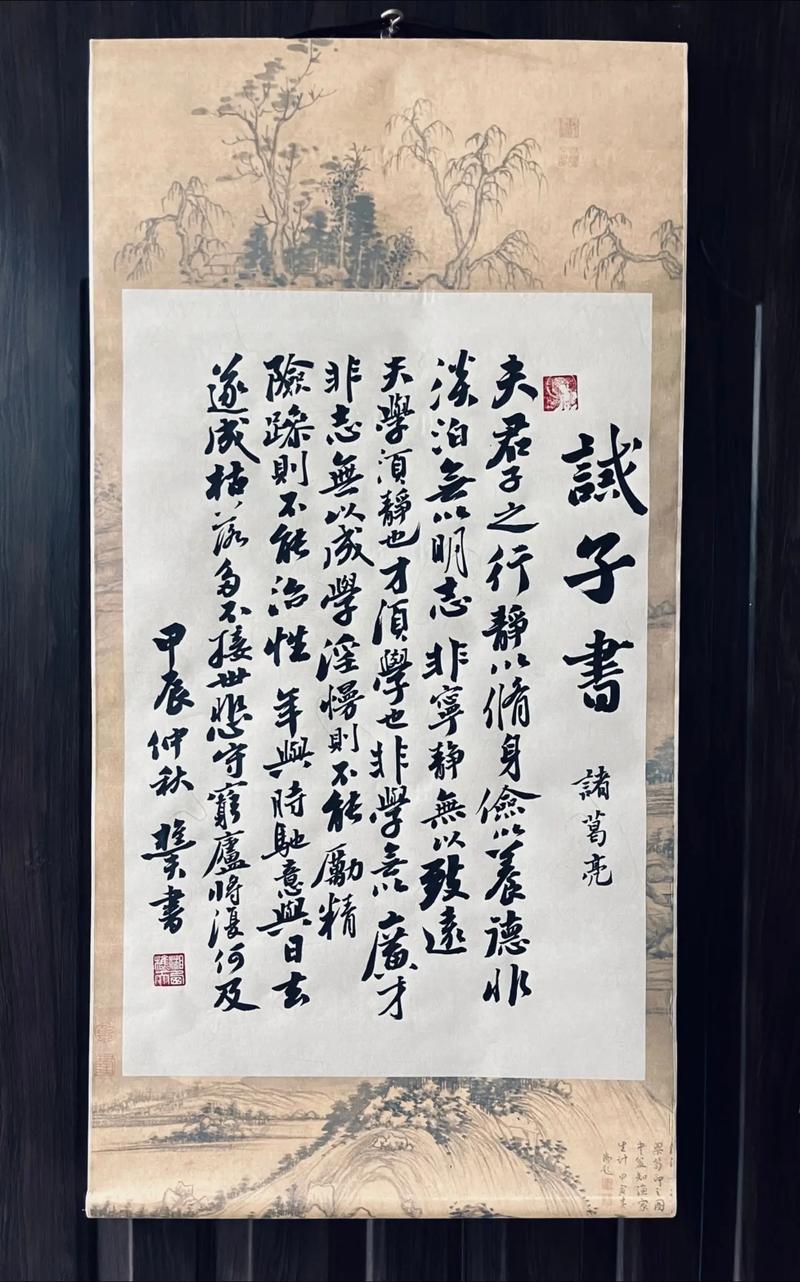 誡子書 諸葛亮
夫君子之行靜以脩身儉以養德非
淡泊無以明志非寧靜無以致遠
夫學須靜也才須學也非學無以廣才
非志無以成學淫慢則不能勵精
險躁則不能治性年與時馳意與日去
遂成枯落多不接世悲守窮廬將復何及
甲辰仲秋 書